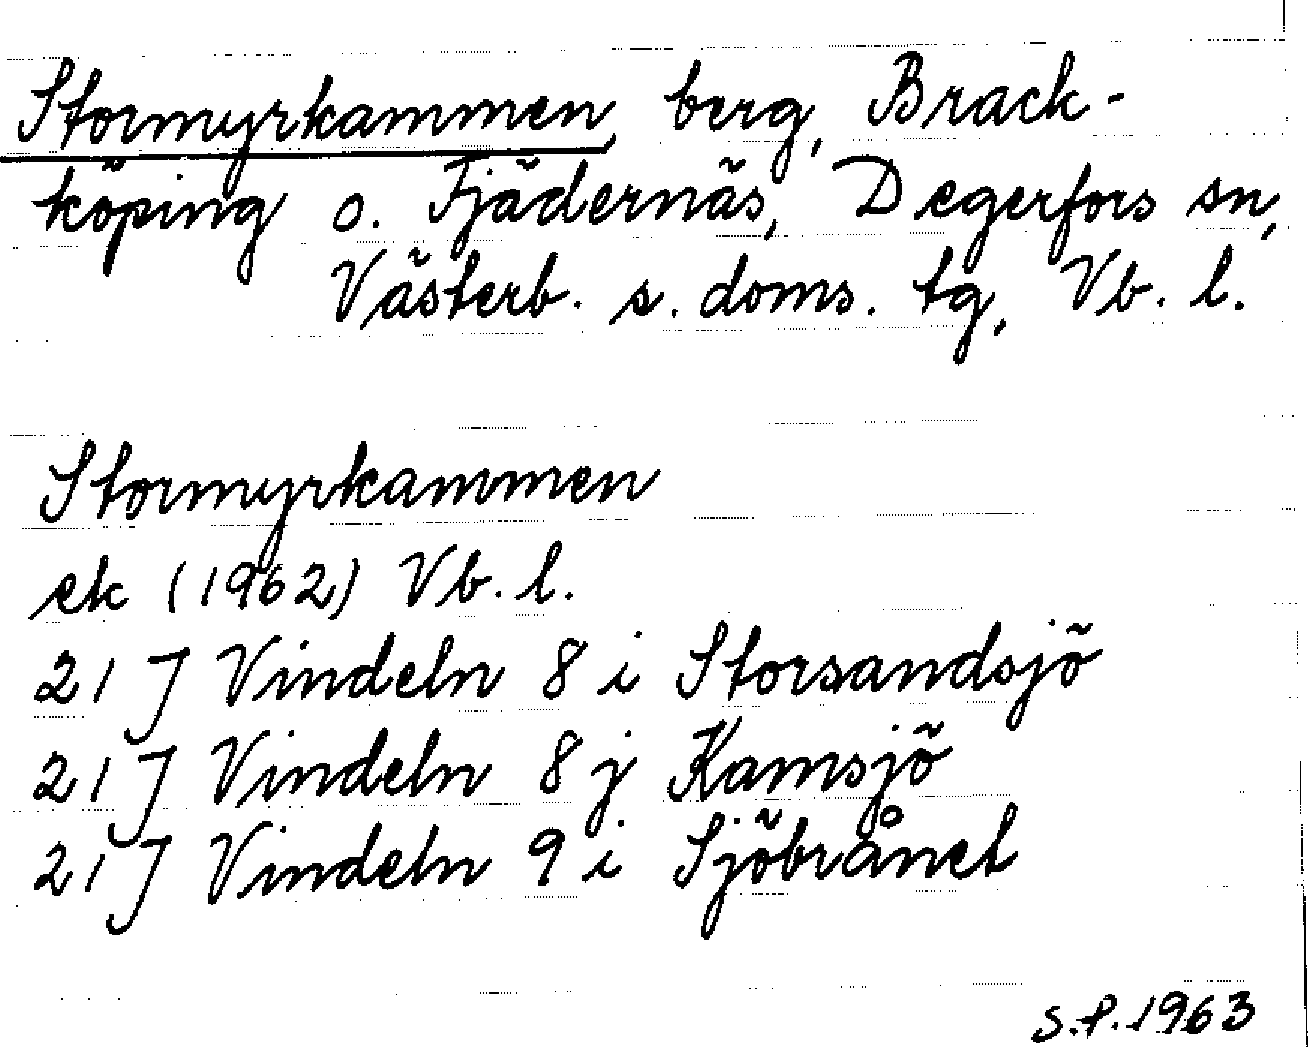 Stormyrkammen, berg, Brack-
köping o. Fjädernäs, Degerfors sn,
Västerb. s. doms. tg, Vb. l.
Stormyrkammen
ek (1962) Vb. l.
21 J Vindeln 8 i Storsandsjö
21 J Vindeln 8 j Kamsjö
21 J Vindeln 9 i Sjöbrånet
S.P. 1963